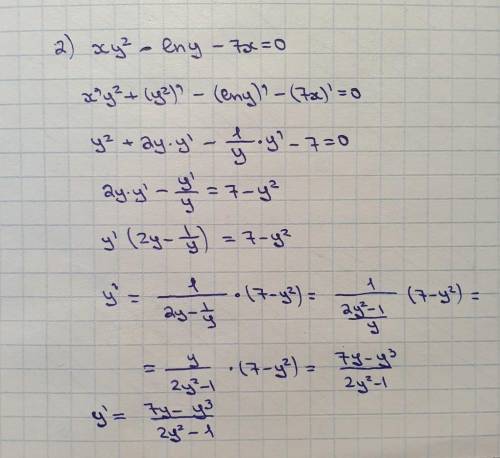 2) xy² - lny - 7x = 0
x'y² + (y²)' - (lny)' - (7x)' = 0
y² + 2y·y' - 1/y · y' - 7 = 0
2y·y' - y'/y = 7 - y²
y' (2y - 1/y) = 7 - y²
y' = 1/(2y - 1/y) · (7 - y²) = 1/((2y² - 1)/y) (7 - y²) =
= y/(2y² - 1) · (7 - y²) = (7y - y³)/(2y² - 1)
y' = (7y - y³)/(2y² - 1)